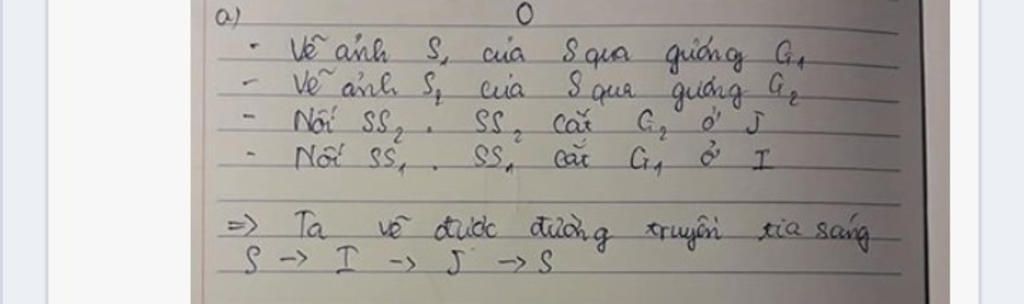 a) O
- Vẽ ảnh S₁ của S qua gương G₁
- Vẽ ảnh S₂ của S qua gương G₂
- Nối SS₂. SS₂ cắt G₂ ở J
- Nối SS₁. SS₁ cắt G₁ ở I
=> Ta vẽ được đường truyền tia sáng
S -> I -> J -> S